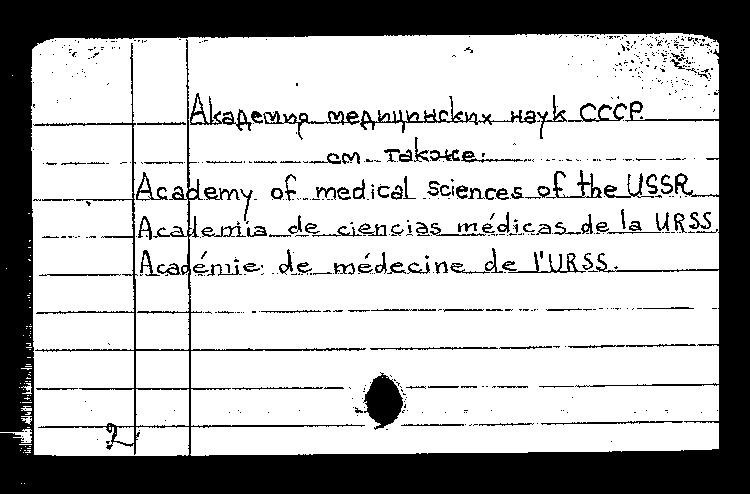 Академия медицинских наук СССР
см. также:
Academy of medical Sciences of the USSR
Academia de ciencias médicas de la URSS.
Académie de médecine de l'URSS.
2